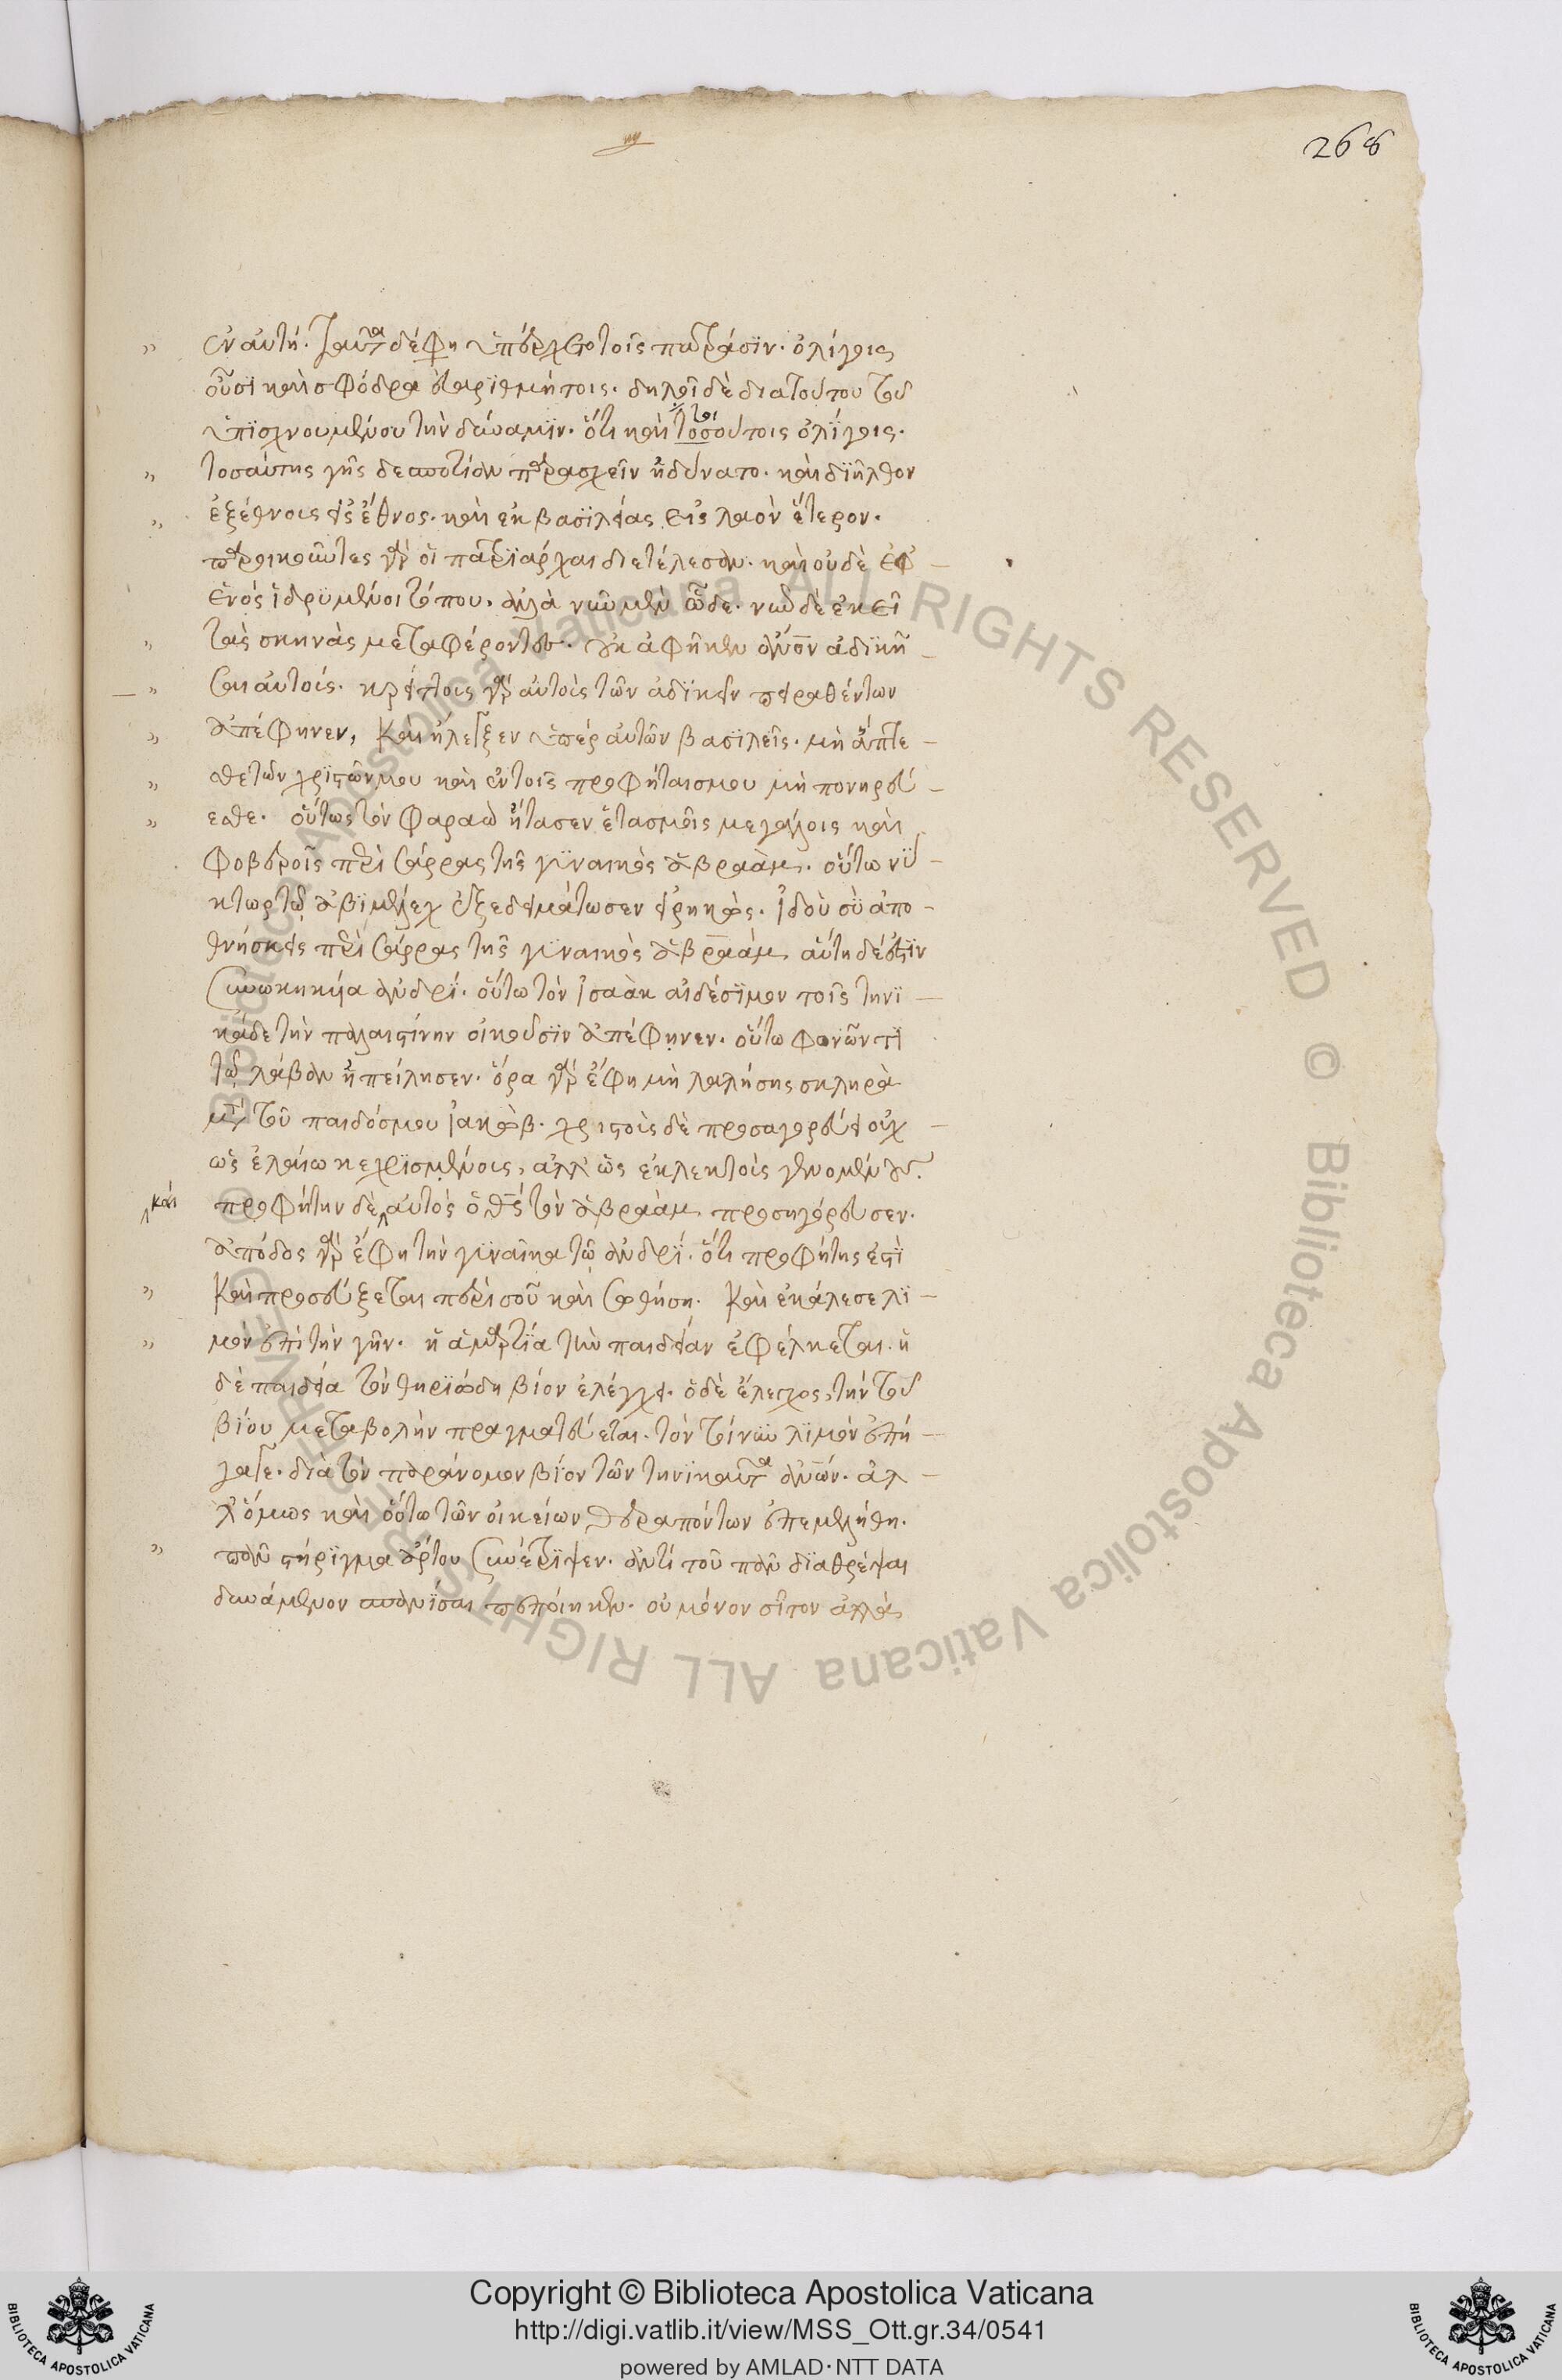 268
ἐν αὐτῇ. ταῦτα δὲ ἔφη ὑπέσχετο τοῖς πατράσιν. ὀλίγοις
οὖσι καὶ σφόδρα εὐαριθμήτοις. δηλοῖ δὲ διὰ τούτου τοῦ
ὑπισχνουμένου τὴν δύναμιν. ὅτι καὶ τοσούτοις ὀλίγοις.
τοσαύτης γῆς δεσποτίαν παρασχεῖν ἠδύνατο. καὶ διῆλθον
ἐξ ἔθνους εἰς ἔθνος. καὶ ἐκ βασιλείας εἰς λαὸν ἕτερον.
παροικοῦντες γὰρ οἱ πατριάρχαι διετέλεσαν. καὶ οὐδὲ ἐφ
ἑνὸς ἱδρυμένοι τόπου. ἀλλὰ νῦν μὲν ὧδε. νῦν δὲ ἐκεῖ
τὰς σκηνὰς μεταφέροντες. οὐκ ἀφῆκεν ἄνον ἀδικῆ
σαι αὐτούς. κρείττοις γὰρ αὐτοὺς τῶν ἀδικεῖν πειραθέντων
ἀπέφηνεν, καὶ ἤλεγξεν ὑπὲρ αὐτῶν βασιλεῖς. μὴ ἅπτε
σθε τῶν χριστῶν μου καὶ ἐν τοῖς προφήταις μου μὴ πονηρεύ
εσθε. οὕτως τὸν Φαραὼ ἤτασεν ἐτασμοῖς μεγάλοις καὶ
φοβεροῖς περὶ σάρρας τῆς γυναικὸς ἀβραάμ. οὕτω νύ
κτωρ τῷ ἀβιμέλεχ ἐξεδειμάτωσεν εἰρηκώς. ἰδοὺ σὺ ἀπο
θνήσκεις περὶ σάρρας τῆς γυναικὸς ἀβραάμ αὕτη δέ ἐστιν
συνωκηκυῖα ἀνδρί. οὕτω τὸν ἰσαὰκ αἰδέσιμον τοῖς τηνι
κάδε τὴν παλαιστίνην οἰκοῦσιν ἀπέφηνεν. οὕτω φονῶντι
τῷ λάβαν ἠπείλησεν. ὅρα γὰρ ἔφη μὴ λαλήσῃς σκληρὰ
μετὰ τοῦ παιδός μου ἰακώβ. χριστοὺς δὲ προσαγορεύει οὐχ
ὡς ἐλαίω κεχρισμένοις, ἀλλ' ὡς ἐκλεκτοὺς γενομένους.
καὶ
προφήτην δὲ αὐτὸς ὁ θς τὸν ἀβραὰμ προσηγόρευσεν.
ἀπόδος γὰρ ἔφη τὴν γυναῖκα τῷ ἀνδρί. ὅτι προφήτης ἐστὶ
καὶ προσεύξεται περὶ σοῦ καὶ σωθήσῃ. Καὶ ἐκάλεσε λι
μὸν ἐπὶ τὴν γῆν. ἡ ἁμαρτία τὴν παιδείαν ἐφέλκεται. ἡ
δὲ παιδεία τὸν θηριώδη βίον ἐλέγχει. ὁ δὲ ἔλεγχος, τὴν τοῦ
βίου μεταβολὴν πραγματεύεται. τὸν τοίνυν λιμὸν ἐπή
γαγε. διὰ τὸν παράνομον βίον τῶν τηνικαῦτα ἀνων. ἀλ
λ' ὅμως καὶ οὕτω τῶν οἰκείων θεραπόντων ἐπεμελήθη.
πᾶν στήριγμα ἄρτου συνέτριψεν. ἀντὶ τοῦ πᾶν διαθρέψαι
δυνάμενον σπανίσαι πεποίηκεν. οὐ μόνον σῖτον ἀλλὰ